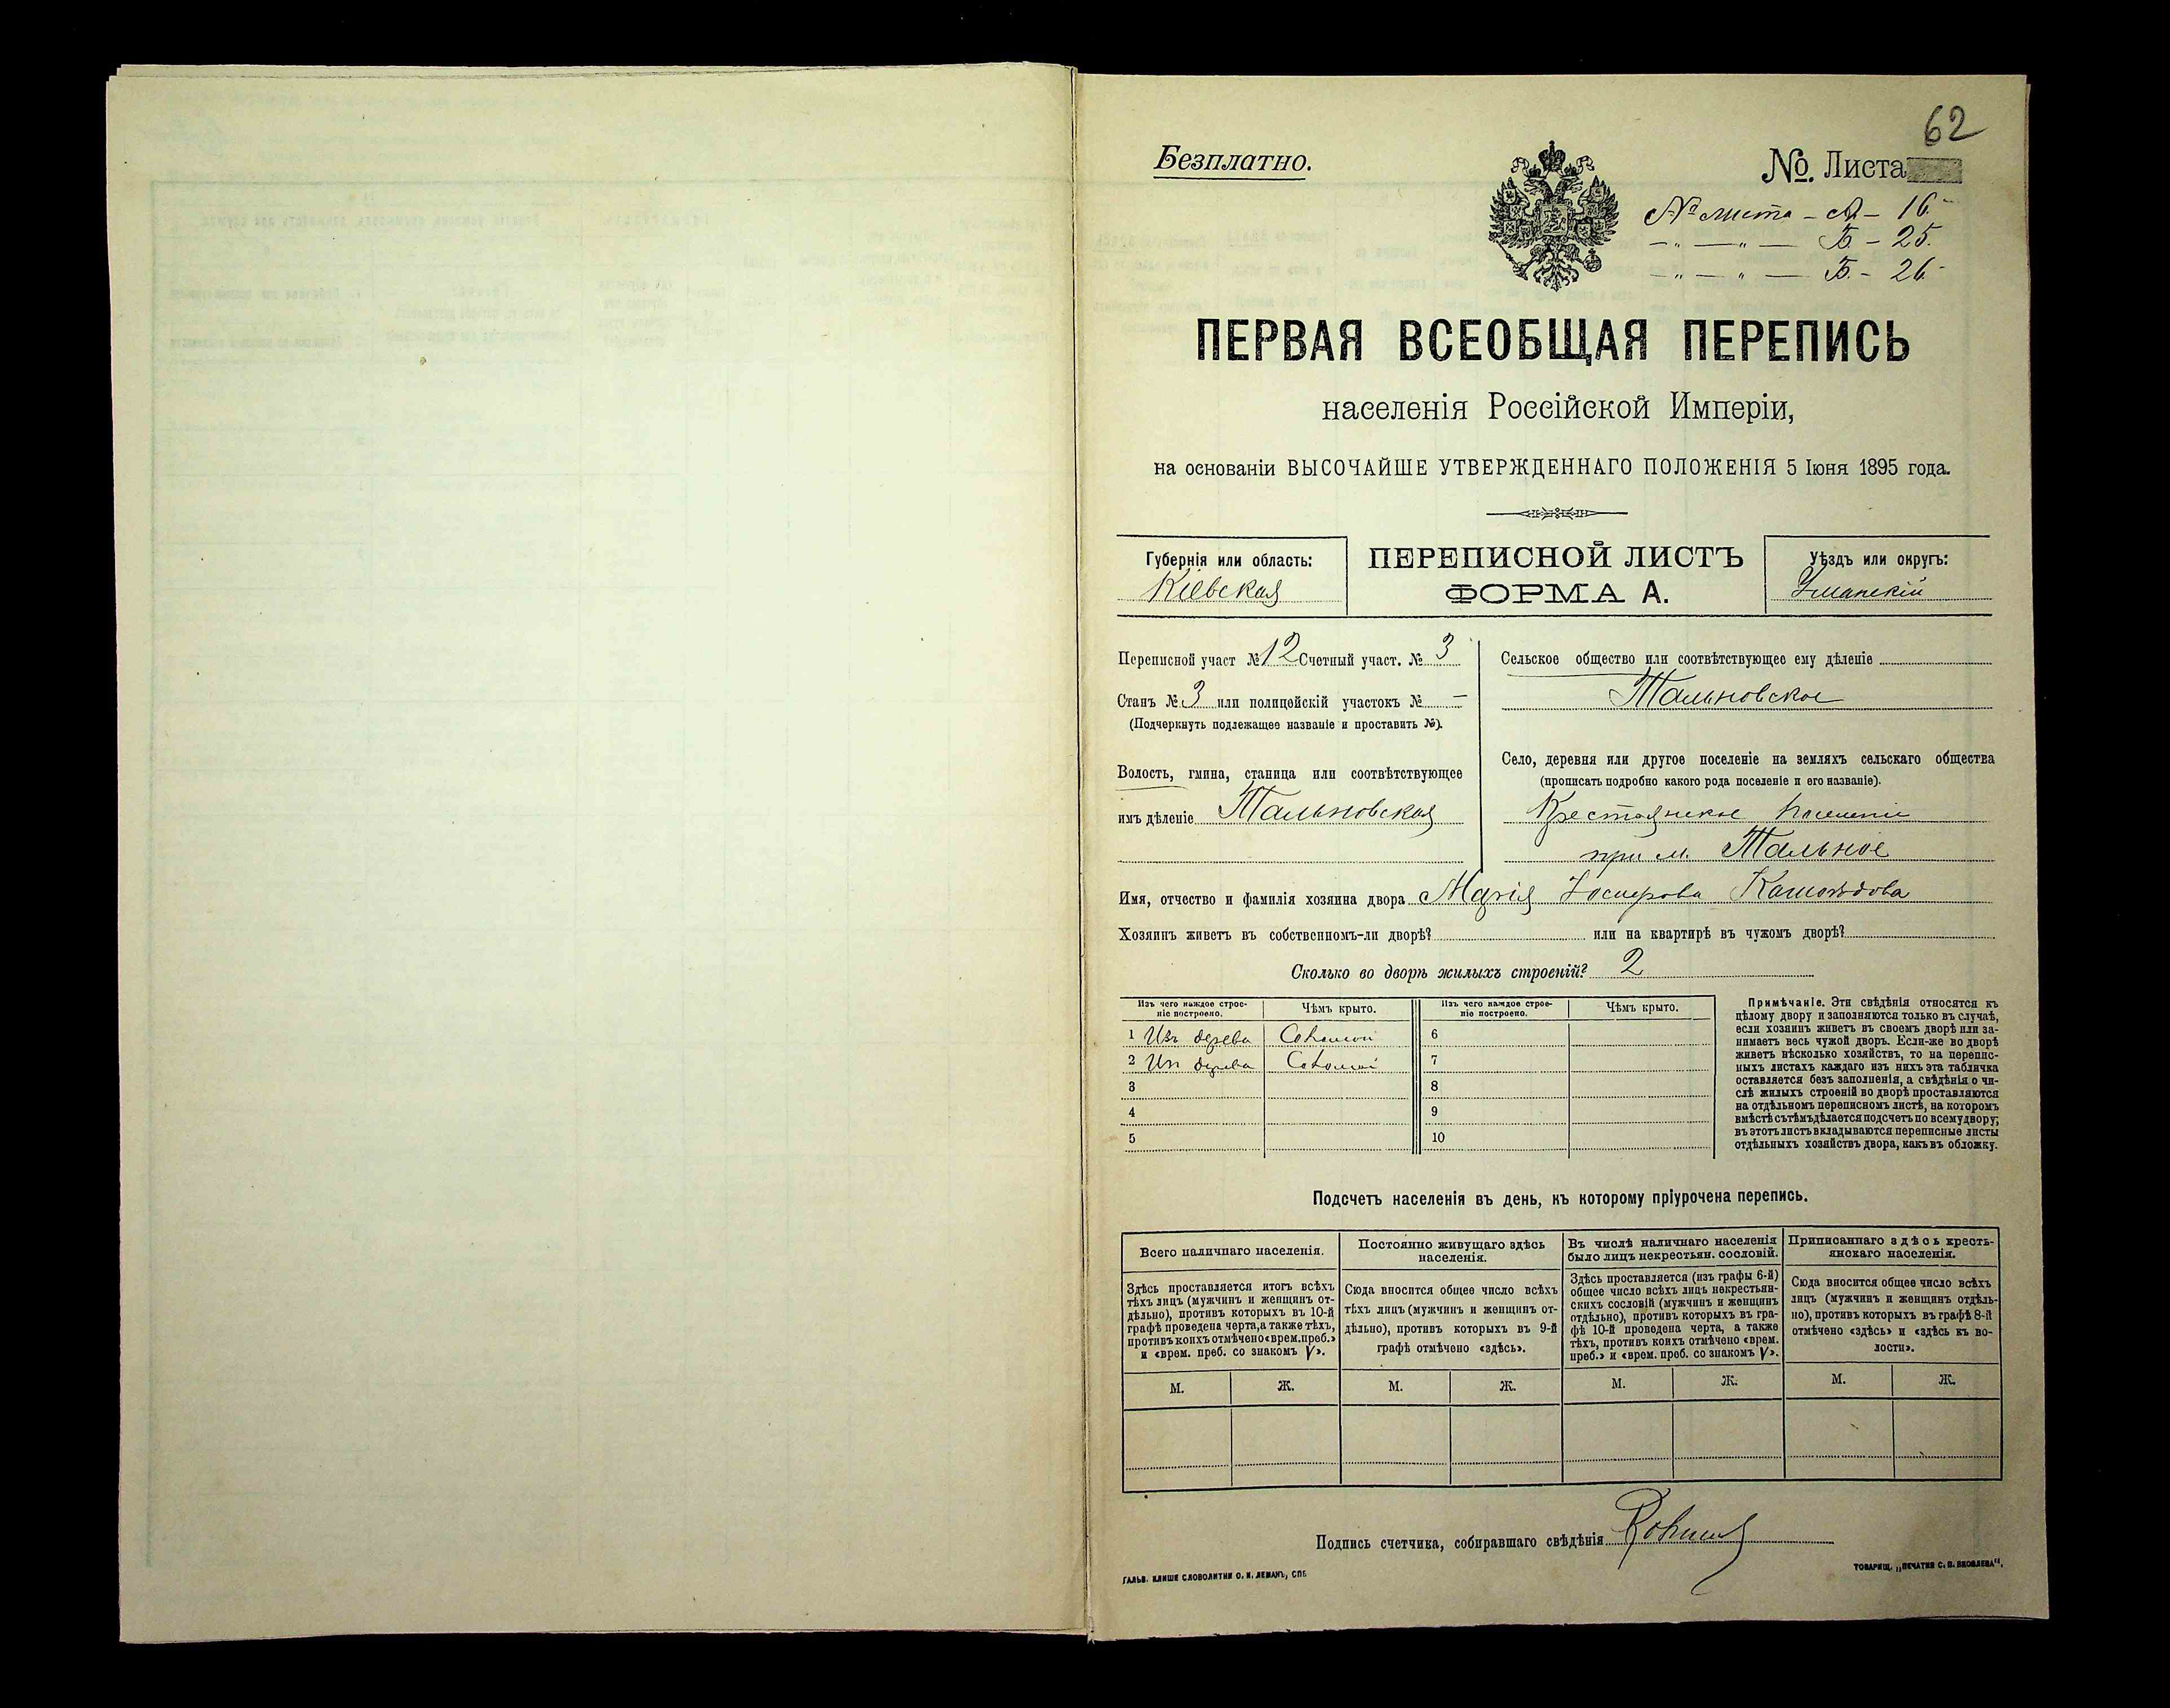 62
Безплатно.
№. Листа
№ листа - А - 16.
- „ - „ - Б. - 25.
- „ - „ - Б. - 26.
ПЕРВАЯ ВСЕОБЩАЯ ПЕРЕПИСЬ
населенія Россійской Имперіи,
на основаніи ВЫСОЧАЙШЕ УТВЕРЖДЕННАГО ПОЛОЖЕНІЯ 5 Іюня 1895 года.
Губернія или область:
Кіевская
ПЕРЕПИСНОЙ ЛИСТЪ
ФОРМА А.
Уѣздъ или округъ:
Уманскій
Переписной участ № 12 Счетный участ. № 3
Станъ № 3 или полицейскій участокъ № —
(Подчеркнуть подлежащее названіе и проставить №).
Волость, гмина, станица или соотвѣтствующее
имъ дѣленіе Тальновская
Сельское общество или соотвѣтствующее ему дѣленіе
Тальновское
Село, деревня или другое поселеніе на земляхъ сельскаго общества
(прописать подробно какого рода поселеніе и его названіе).
Крестьянское поселеніе
при м. Тальное
Имя, отчество и фамилія хозяина двора Марія
Хозяинъ живетъ въ собственномъ-ли дворѣ? или на квартирѣ въ чужомъ дворѣ?
Сколько во дворѣ жилыхъ строеній? 2
Изъ чего каждое строе-
ніе построено.
Чѣмъ крыто.
Изъ чего каждое строе-
ніе построено.
Чѣмъ крыто.
1 Изъ дерева Соломой 6
2 Изъ дерева Соломой 7
3 8
4 9
5 10
Примѣчаніе. Эти свѣдѣнія относятся къ
цѣлому двору и заполняются только въ случаѣ,
если хозяинъ живетъ въ своемъ дворѣ или за-
нимаетъ весь чужой дворъ. Если-же во дворѣ
живетъ нѣсколько хозяйствъ, то на перепис-
ныхъ листахъ каждаго изъ нихъ эта табличка
оставляется безъ заполненія, а свѣдѣнія о чи-
слѣ жилыхъ строеній во дворѣ проставляются
на отдѣльномъ переписномъ листѣ, на которомъ
вмѣстѣ съ тѣмъ дѣлается подсчетъ по всему двору;
въ этотъ листъ вкладываются переписные листы
отдѣльныхъ хозяйствъ двора, какъ въ обложку.
Подсчетъ населенія въ день, къ которому пріурочена перепись.
Всего наличнаго населенія.
Здѣсь проставляется итогъ всѣхъ
тѣхъ лицъ (мужчинъ и женщинъ от-
дѣльно), противъ которыхъ въ 10-й
графѣ проведена черта, а также тѣхъ,
противъ коихъ отмѣчено «врем. преб.»
и «врем. преб. со знакомъ V».
Постоянно живущаго здѣсь
населенія.
Сюда вносится общее число всѣхъ
тѣхъ лицъ (мужчинъ и женщинъ от-
дѣльно), противъ которыхъ въ 9-й
графѣ отмѣчено «здѣсь».
Въ числѣ наличнаго населенія
было лицъ некрестьян. сословій.
Здѣсь проставляется (изъ графы 6-й)
общее число всѣхъ лицъ некрестьян-
скихъ сословій (мужчинъ и женщинъ
отдѣльно), противъ которыхъ въ гра-
фѣ 10-й проведена черта, а также
тѣхъ, противъ коихъ отмѣчено «врем.
преб.» и «врем. преб. со знакомъ V».
Приписаннаго здѣсь кресть-
янскаго населенія.
Сюда вносится общее число всѣхъ
лицъ (мужчинъ и женщинъ отдѣль-
но), противъ которыхъ въ графѣ 8-й
отмѣчено «здѣсь» и «здѣсь къ во-
лости».
М. Ж. М. Ж. М. Ж. М. Ж.
Подпись счетчика, собиравшаго свѣдѣнія
ГАЛЬВ. КЛИШЕ СЛОВОЛИТНИ О. И. ЛЕМАНЪ, СПБ.
ТОВАРИЩ. „ПЕЧАТНЯ С. П. ЯКОВЛЕВА“.